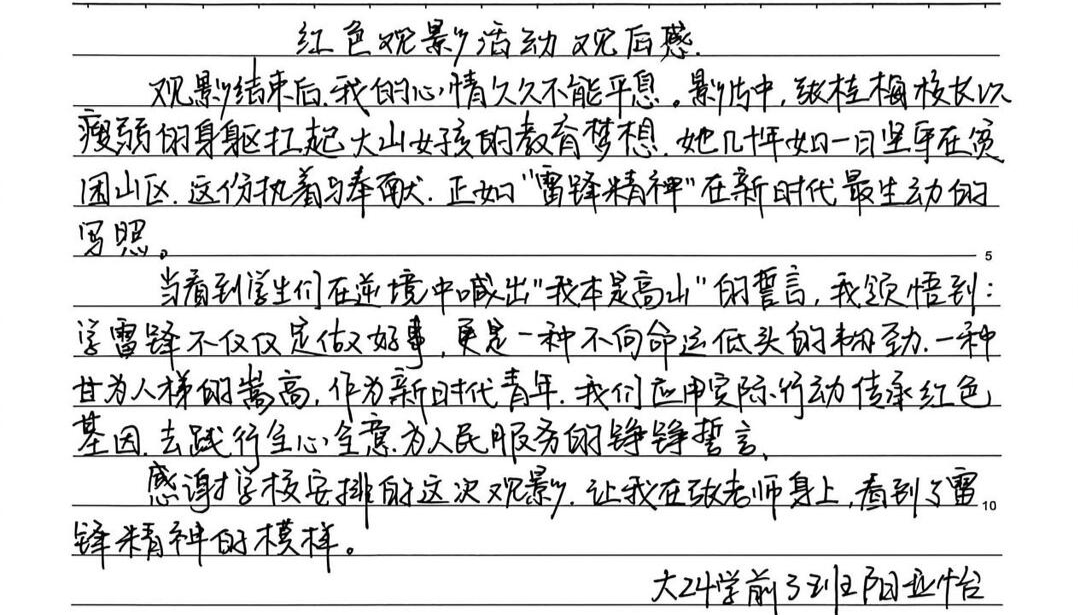 红色观影活动观后感
观影结束后,我的心情久久不能平息。影片中,张桂梅校长以
瘦弱的身躯扛起大山女孩的教育梦想,她几十年如一日坚守在贫
困山区,这份执着与奉献,正如"雷锋精神"在新时代最生动的
写照。
5
当看到学生们在逆境中喊出"我本是高山"的誓言,我领悟到:
学雷锋不仅仅是做好事,更是一种不向命运低头的韧劲,一种
甘为人梯的嵩高,作为新时代青年,我们应用实际行动传承红色
基因,去践行全心全意为人民服务的铮铮誓言,
感谢学校安排的这次观影,让我在张老师身上,看到了雷
10
锋精神的模样。
大24学前3班阳